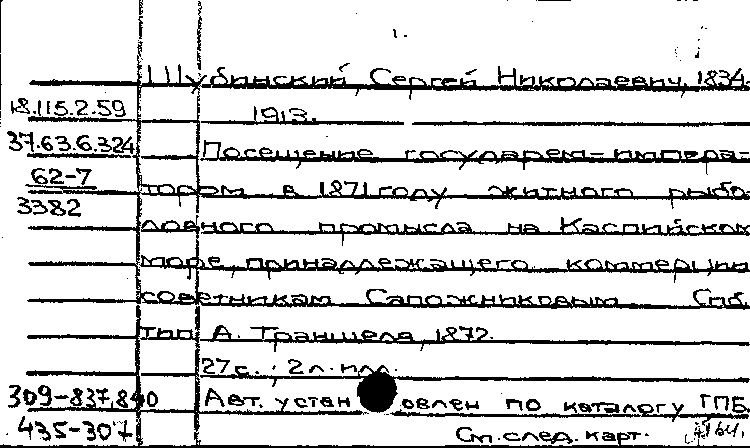 1.
Шубинский, Сергей Николаевич, 1834-
18.115.2.59 1913.
37.63.6.324 Посещение государем-импера-
62-7 тором в 1871 году житного рыбо
3382 ловного промысла на Каспийском
море, принадлежащего коммерции
советникам Сапожниковым. Спб.
тип. А. Траншеля, 1872.
27 с.; 2 л. илл.
309-837,840 Авт. установлен по каталогу ГПБ
435-307 См. след. карт.